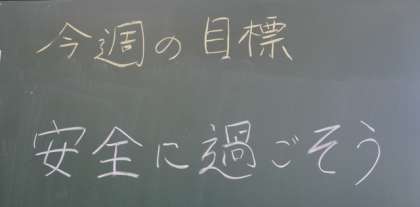 今週の目標
安全に過ごそう